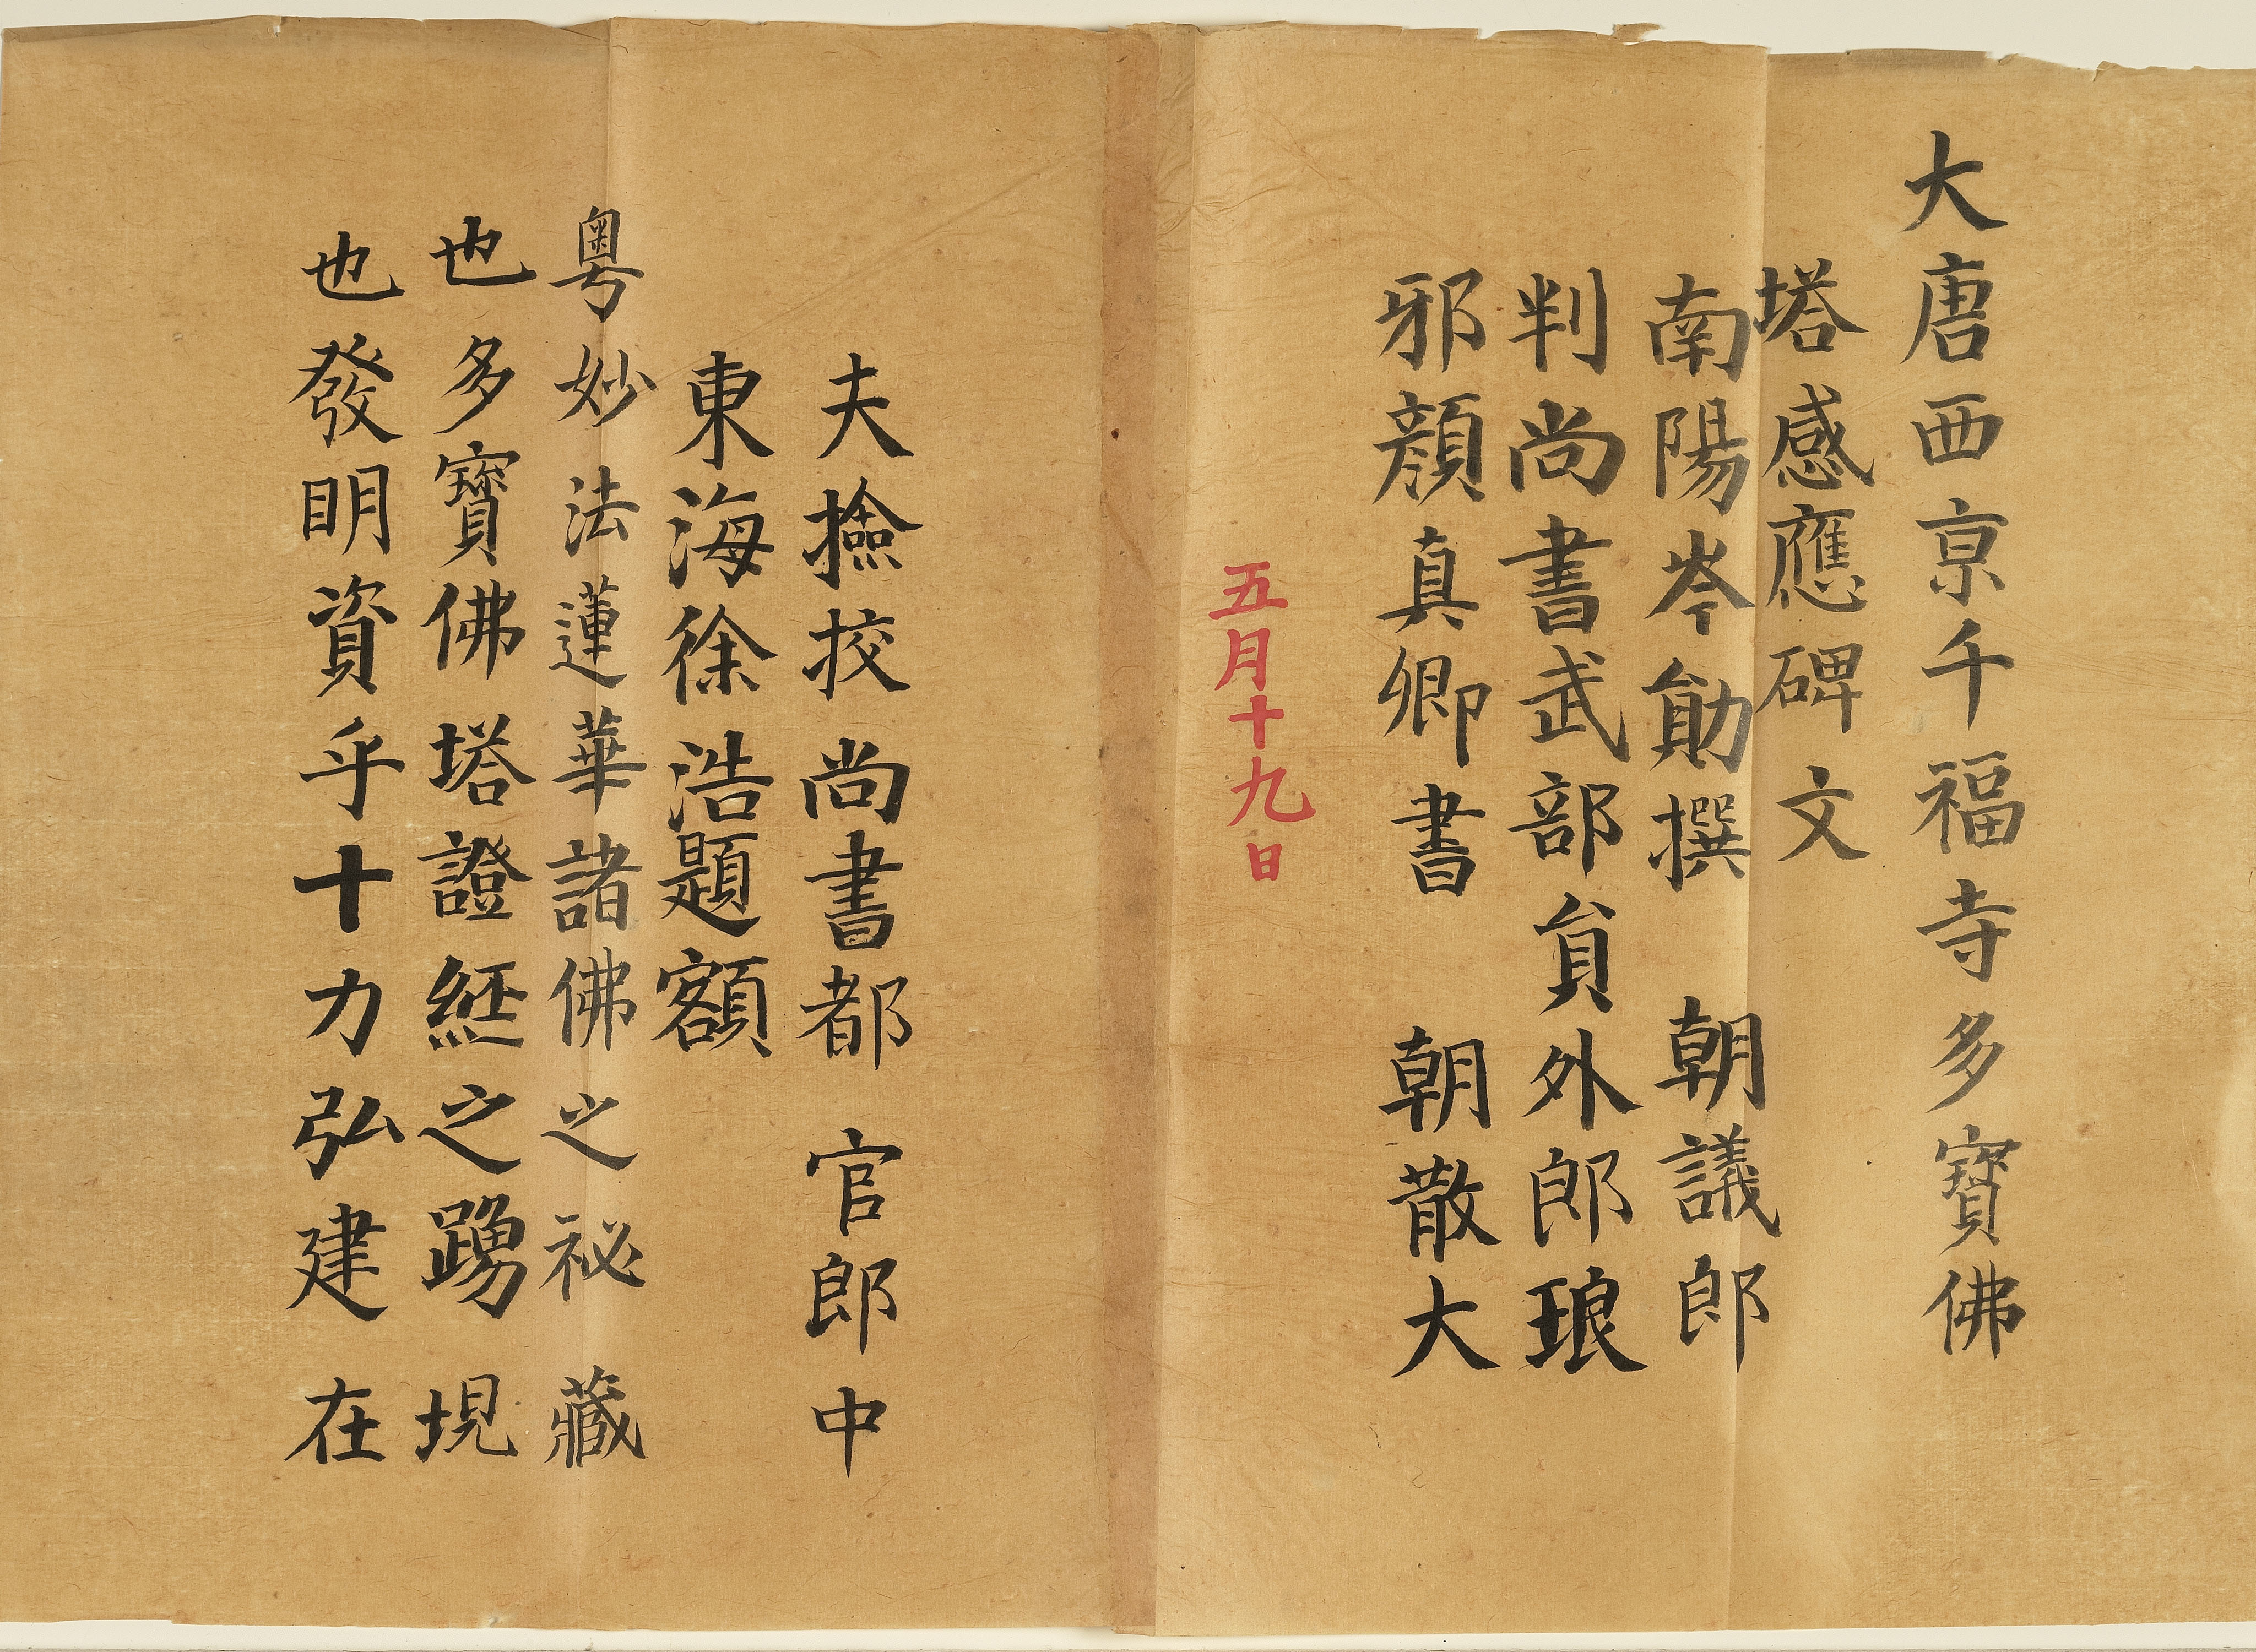 大唐西京千福寺多寶佛
塔感應碑文
南陽岑勛撰 朝議郎
判尚書武部員外郎琅
邪顏真卿書 朝散大
五月十九日
夫撿挍尚書都 官郎中
東海徐浩題額
粵妙法蓮華諸佛之祕藏
也多寶佛塔證經之踴現
也發明資乎十力弘建在